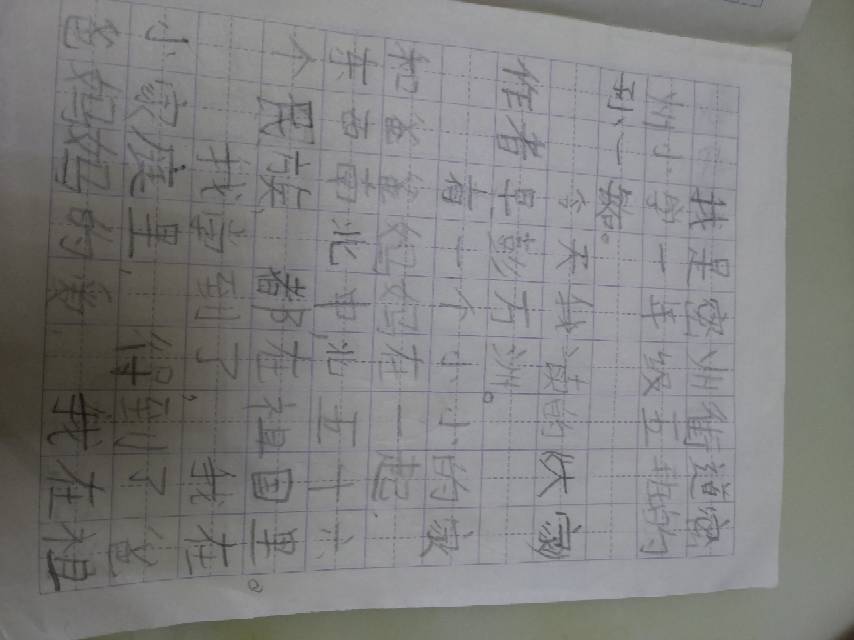 我是密州街道密
州小学一年级五班的
孙一铭。
今天我读的《家》
作者是彭万洲。
有一个小小的家
和爸爸妈妈在一起.
东西南北中北五十六
个民族,都在祖国里。
我得到了,我在
小家庭里,得到了爸
爸妈妈的爱.我在祖